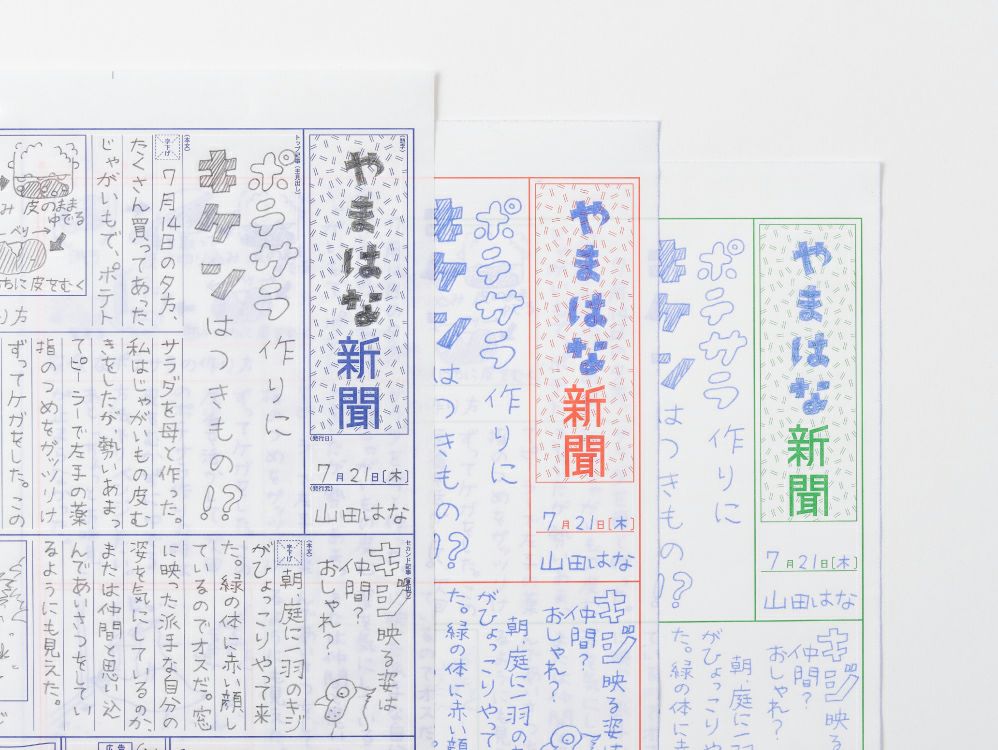 (題字)
やまはな
新聞
(発行日)
7月21日[木]
(発行元)
山田はな
トップ記事(主見出し)
ポテサラ作りに
キケンはつきもの!?
(本文)
字下げ
7月14日の夕方、
たくさん買ってあった
じゃがいもで、ポテト
サラダを母と作った。
私はじゃがいもの皮む
きをしたが、勢いあまっ
てピーラーで左手の薬
指のつめをガッツリけ
ずってケガをした。この
皮のまま
ゆでる
ペリー
ちに皮をむく
り方
キジ映る姿は
仲間?
おしゃれ?
(本文)
字下げ
朝、庭に一羽のキジ
がひょっこりやって来
た。緑の体に赤い顔し
ているのでオスだ。窓
に映った派手な自分の
姿を気にしているのか、
または仲間と思い込
んであいさつをしてい
るようにも見えた。
広告
やまはな
新聞
7月21日[木]
山田はな
ポテサラ作りに
キケンはつきもの!?
キジ映る姿は
仲間?
おしゃれ?
朝、庭に一羽の
がひょっこりやって
た。緑の体に赤い顔
やまはな
新聞
7月21日[木]
山田はな
ポテサラ作りに
キケンはつきもの!?
キジ映る
仲間?
おしゃれ?
朝、庭に一
がひょっこり
た。緑の体に